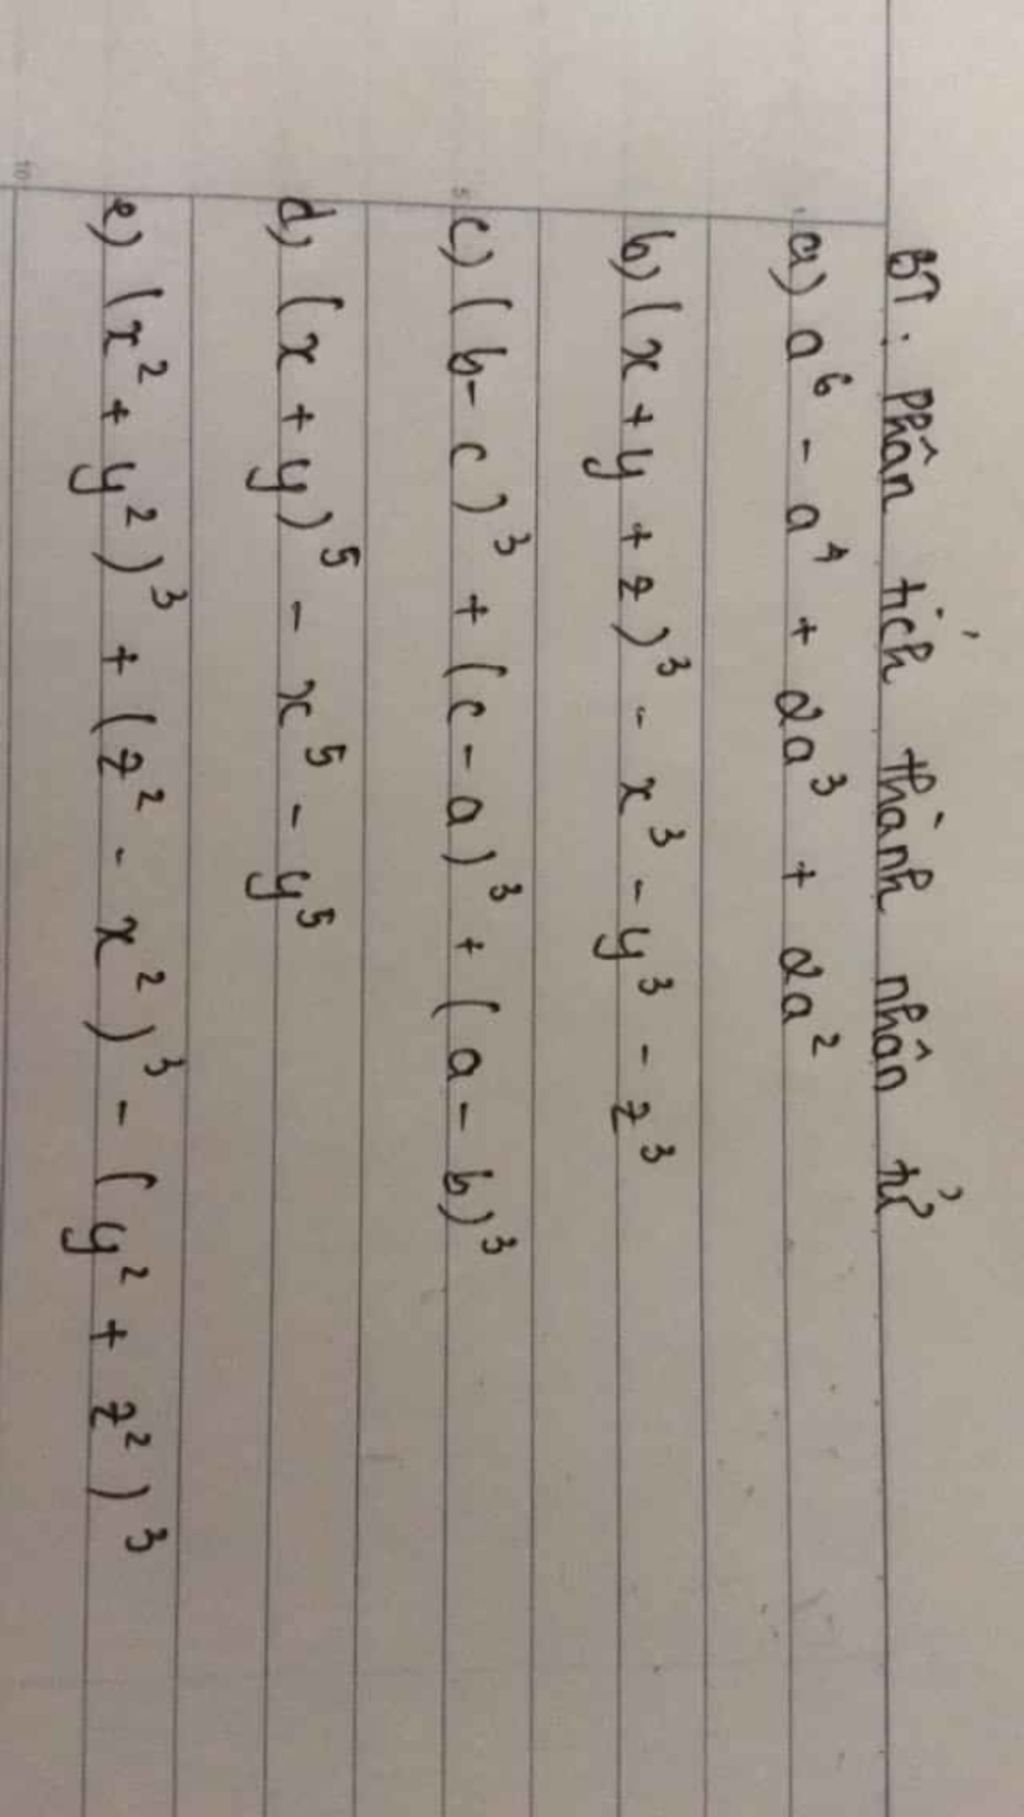 BT: Phân tích thành nhân tử
a) a⁶ - a⁴ + 2a³ + 2a²
b) (x + y + z)³ - x³ - y³ - z³
c) (b - c)³ + (c - a)³ + (a - b)³
d) (x + y)⁵ - x⁵ - y⁵
e) (x² + y²)³ + (z² - x²)³ - (y² + z²)³